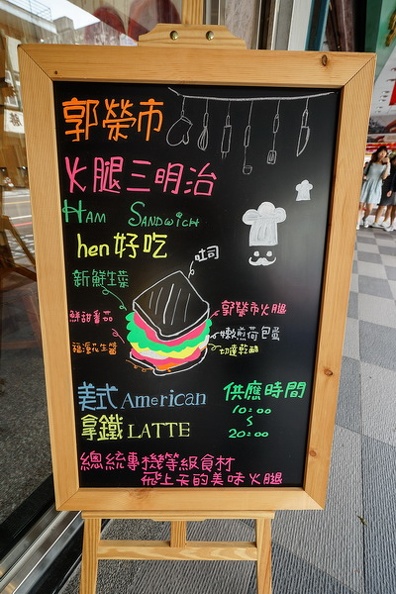 郭榮市
火腿三明治
HAM SANDWICH
hen好吃
吐司
新鮮生菜
郭榮市火腿
鮮甜番茄
嫩煎荷包蛋
福源花生醬
切達乾酪
美式 American
供應時間
10:00
~
20:00
拿鐵 LATTE
總統專機等級食材
飛上天的美味火腿